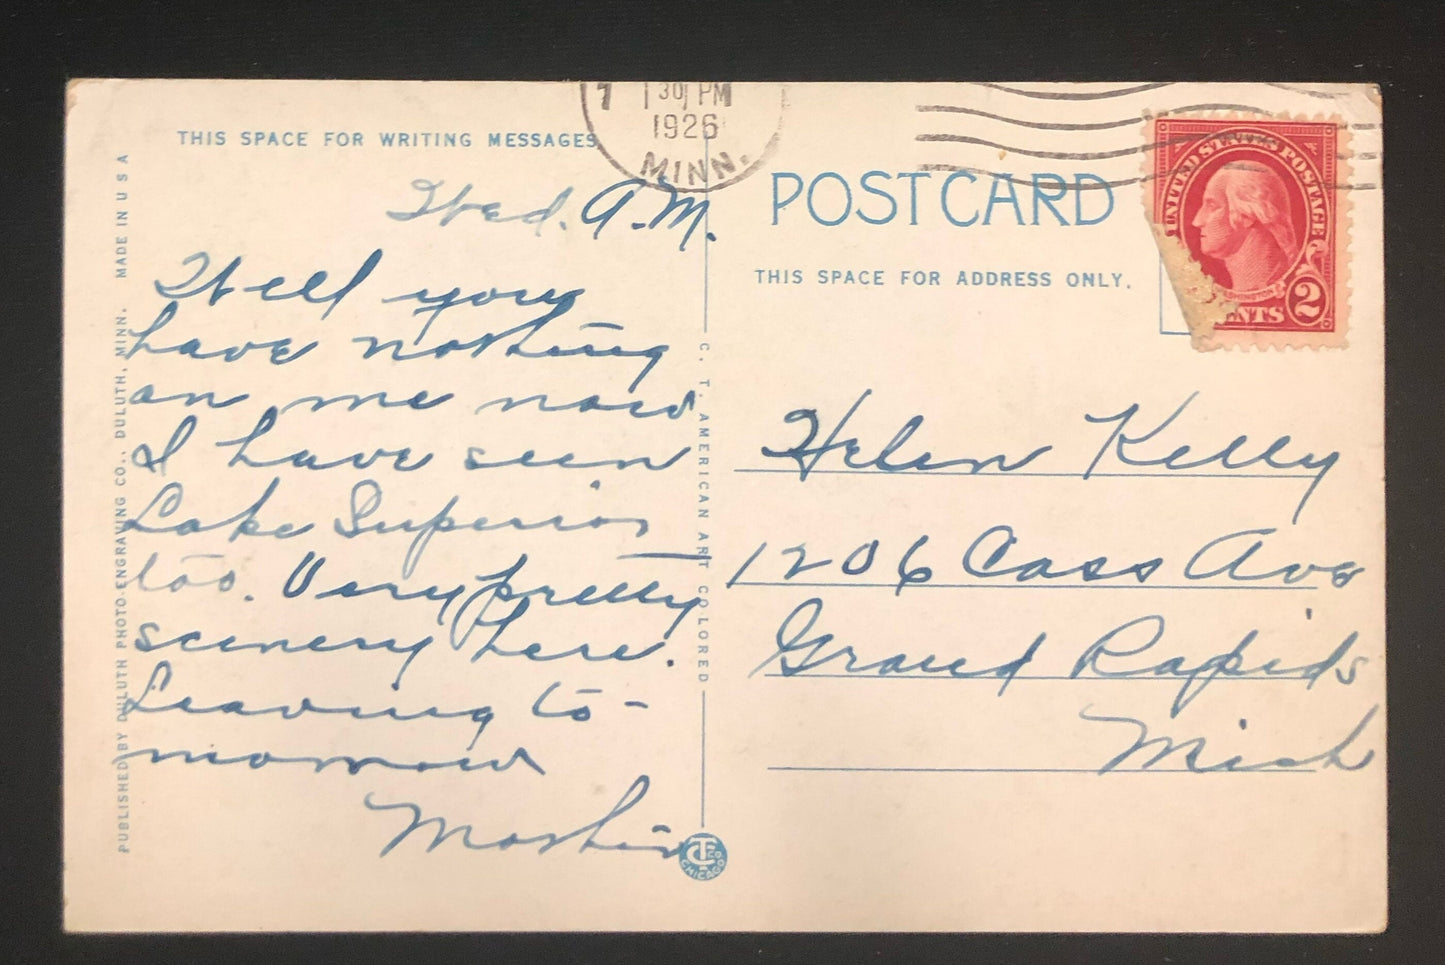 7 30 PM
1926
MINN.
THIS SPACE FOR WRITING MESSAGES
POSTCARD
THIS SPACE FOR ADDRESS ONLY.
UNITED STATES POSTAGE
2
NTS
Wed. A.M.
Well you
have nothing
on me now
I have seen
Lake Superior
too. Very pretty
scenery here.
Leaving to-
morrow
Helen Kelly
1206 Cass Ave
Grand Rapids
Mich
PUBLISHED BY DULUTH PHOTO-ENGRAVING CO., DULUTH, MINN. MADE IN U S A
C. T. AMERICAN ART COLORED
CT CO
CHICAGO